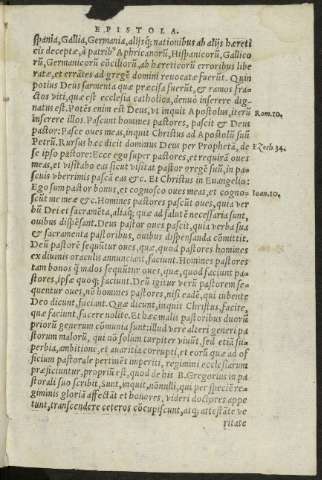 EPISTOLA.
spania, Gallia, Germania, alijsq; nationibus ab alijs hæreti
cis deceptæ, à patrib⁹ Aphricanorũ, Hispanicorũ, Gallico
rũ, Germanicorũ cõciliorũ, ab hæreticorũ erroribus libe
ratæ, et errãtes ad gregẽ domini reuocatæ fuerũt. Quin
potius Deus sarmenta quæ præcisa fuerũt, & ramos fra-
ctos viti, quæ est ecclesia catholica, denuo inserere dig-
natus est. Potẽs enim est Deus, vt inquit Apostolus, iterũ
Rom.10.
inserere illos. Pascunt homines pastores, pascit & Deus
pastor: Pasce oues meas, inquit Christus ad Apostolũ suũ
Petrũ. Rursus hæc dicit dominus Deus per Prophetã, de
Ezech. 34.
se ipso pastore: Ecce ego super pastores, et requirã oues
meas, et visitabo eas sicut visitat pastor gregẽ suũ, in pa-
scuis vberrimis pascã eas &c. Et Christus in Euangelio:
Ego sum pastor bonus, et cognosco oues meas, et cogno
Ioan.10.
scũt me meæ &c. Homines pastores pascũt oues, quia ver
bũ Dei et sacramẽta, aliaq; quæ ad salutẽ necessaria sunt,
ouibus dispẽsant. Deus pastor oues pascit, quia verba sua
& sacramenta pastoribus, ouibus dispensanda cõmittit.
Deũ pastorẽ sequũtur oues, quæ, quod pastores homines
ex diuinis oraculis annunciãt, faciunt. Homines pastores
tam bonos q̃ malos sequũtur oues, quæ, quod faciunt pa-
stores, ipsæ quoq; faciunt. Deũ igitur verũ pastorem se-
quentur oues, nõ homines pastores, nisi eadẽ, qui iubente
Deo dicunt, faciant. Quæ dicunt, inquit Christus, facite,
quæ faciunt, facere nolite. Et hæc malis pastoribus duorũ
priorũ generum cõmunia sunt: illud vere alteri generi pa
storum malorũ, qui nõ solum turpiter viuũt, sed etiã su-
perbia, ambitione, et auaritia corrupti, et eorũ quæ ad of
ficium pastorale pertinẽt imperiti, regimini ecclesiarum
præficiuntur, propriũ est, quod de his B. Gregorius in pa
storali suo scribit, Sunt, inquit, nõnulli, qui per speciẽ re-
giminis gloriã affectãt et honores, videri doctores appe
tunt, transcendere ceteros cõcupiscunt, atq; attestãte ve
ritate